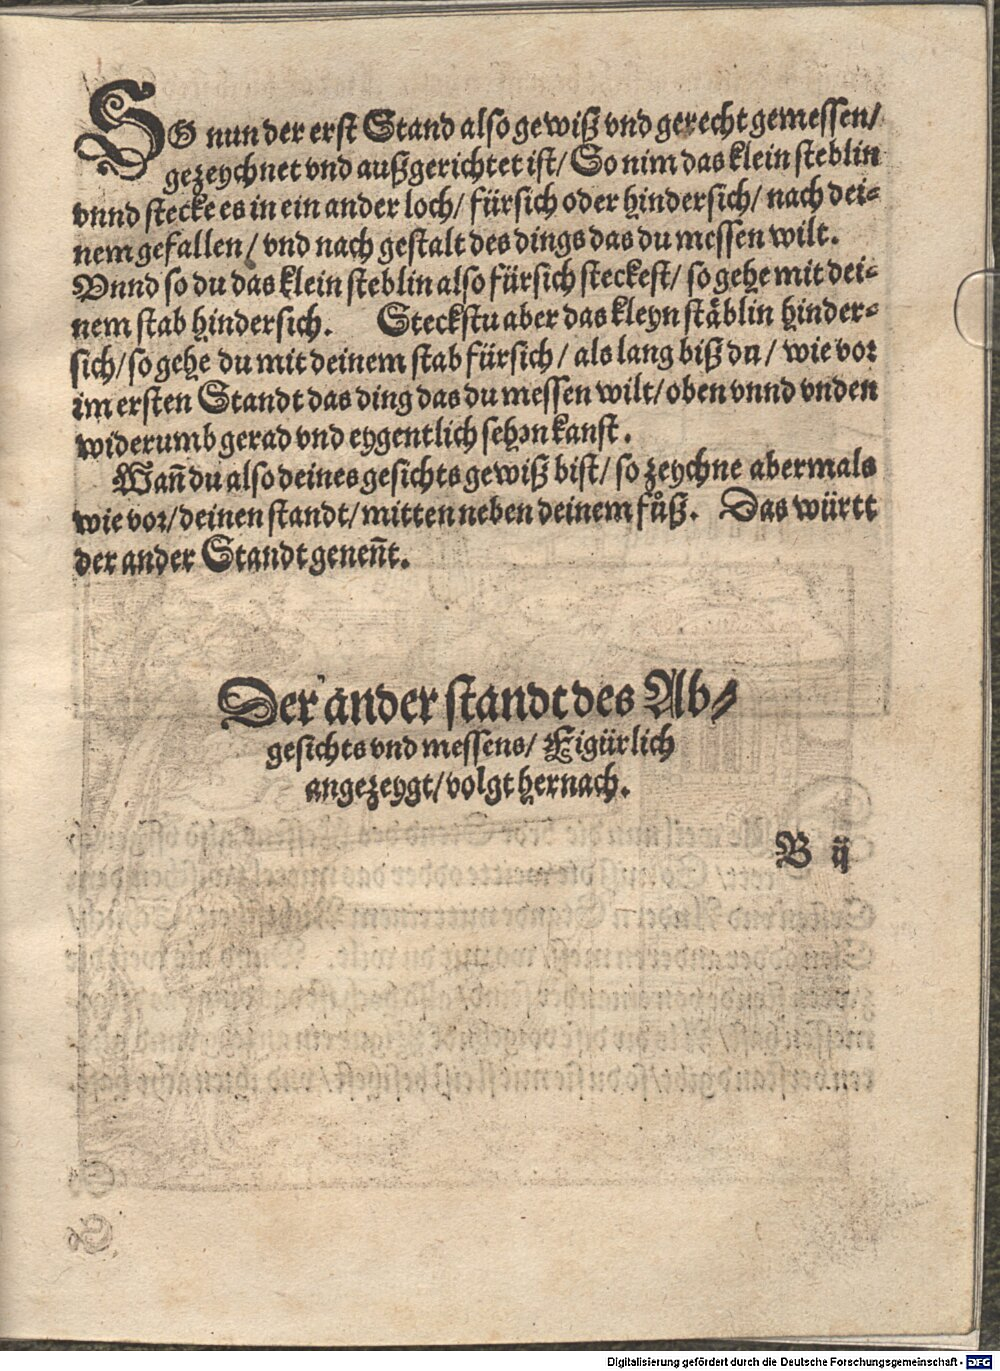 SO nun der erst Stand also gewiß vnd gerecht gemessen/
gezeychnet vnd außgerichtet ist/ So nim das klein steblin
vnnd stecke es in ein ander loch/ fürsich oder hindersich/ nach dei-
nem gefallen/ vnd nach gestalt des dings das du messen wilt.
Vnnd so du das klein steblin also fürsich steckest/ so gehe mit dei-
nem stab hindersich. Steckstu aber das kleyn stäblin hinder-
sich/ so gehe du mit deinem stab fürsich/ als lang biß du/ wie vor
im ersten Standt das ding das du messen wilt/ oben vnnd vnden
widerumb gerad vnd eygentlich sehen kanst.
Wañ du also deines gesichts gewiß bist/ so zeychne abermals
wie vor/ deinen standt/ mitten neben deinem fůß. Das württ
der ander Standt geneñt.
Der ander standt des Ab-
gesichts vnd messens/ Figürlich
angezeygt/ volgt hernach.
B ij
Digitalisierung gefördert durch die Deutsche Forschungsgemeinschaft - DFG